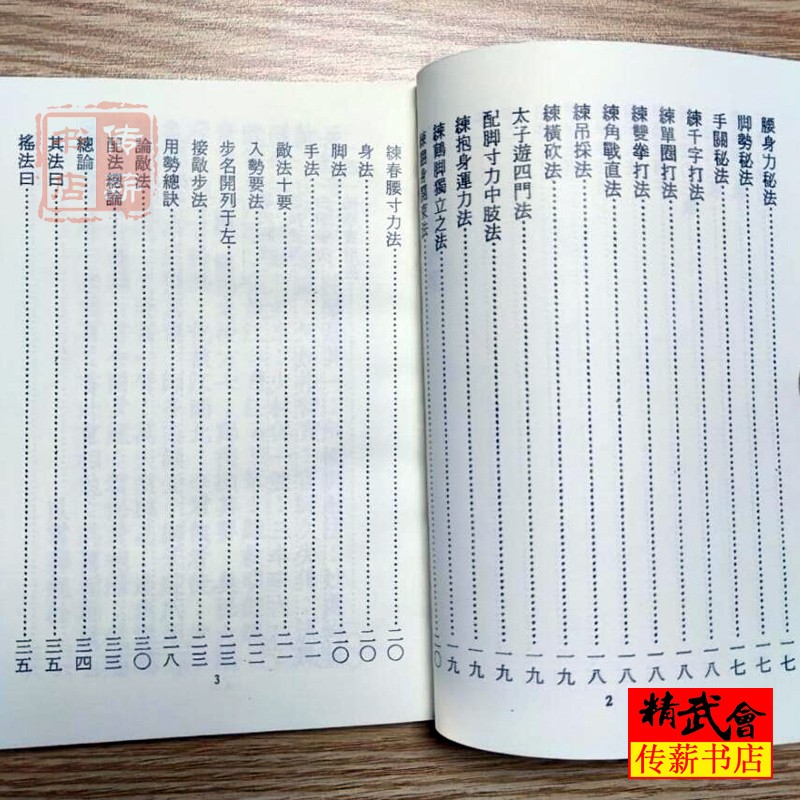 腰身力秘法 一七
脚勢秘法 一七
手關秘法 一七
練千字打法 一八
練單圈打法 一八
練雙拳打法 一八
練角戰直法 一八
練吊採法 一八
練橫砍法 一九
太子遊四門法 一九
配脚寸力中肢法 一九
練抱身運力法 一九
練鶴脚獨立之法 一九
練 身 法 二〇
2
練春腰寸力法 二〇
身法 二〇
脚法 二〇
手法 二一
敵法十要 二一
入勢要法 二二
步名開列于左 二三
接敵步法 二三
用勢總訣 二八
論敵法 三〇
配法總論 三三
總論 三四
其法曰 三五
搖法曰 三五
3
传薪书店
精武會
传薪书店